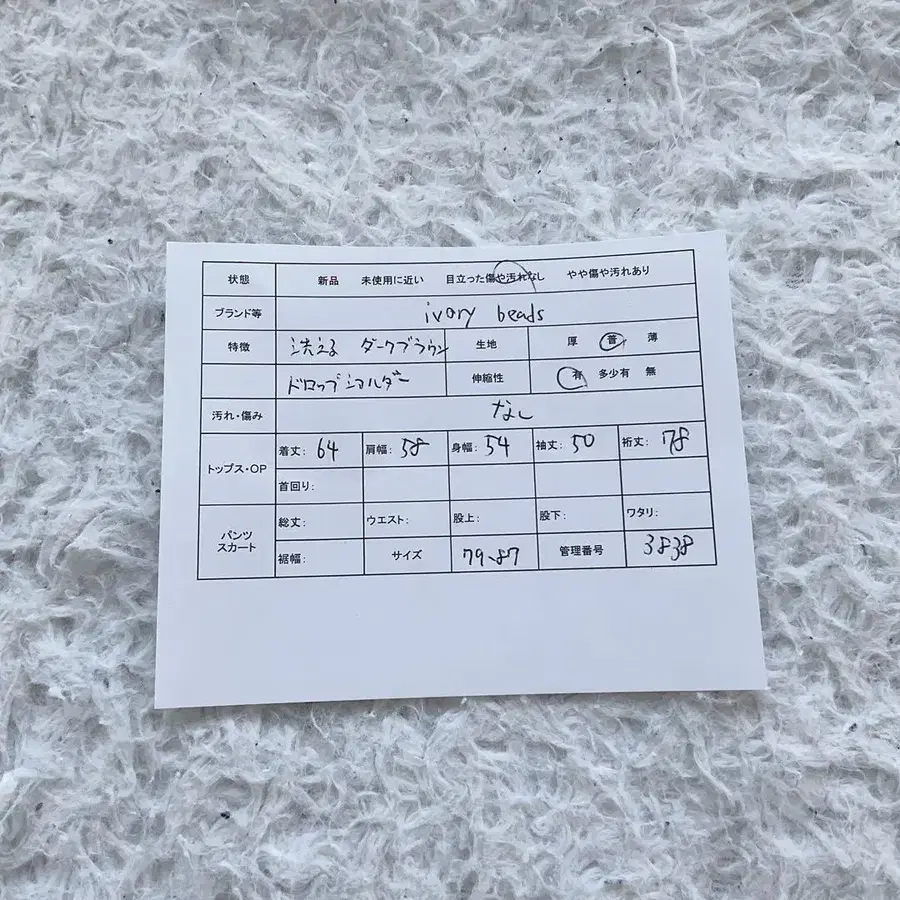 状態 新品 未使用に近い 目立った傷や汚れなし やや傷や汚れあり
ブランド等 ivory beads
特徴 洗える ダークブラウン 生地 厚 普 薄
ドロップショルダー 伸縮性 有 多少有 無
汚れ・傷み なし
トップス・OP 着丈: 64 肩幅: 58 身幅: 54 袖丈: 50 裄丈: 78
首回り:
パンツ スカート 総丈: ウエスト: 股上: 股下: ワタリ:
裾幅: サイズ 79-87 管理番号 3838